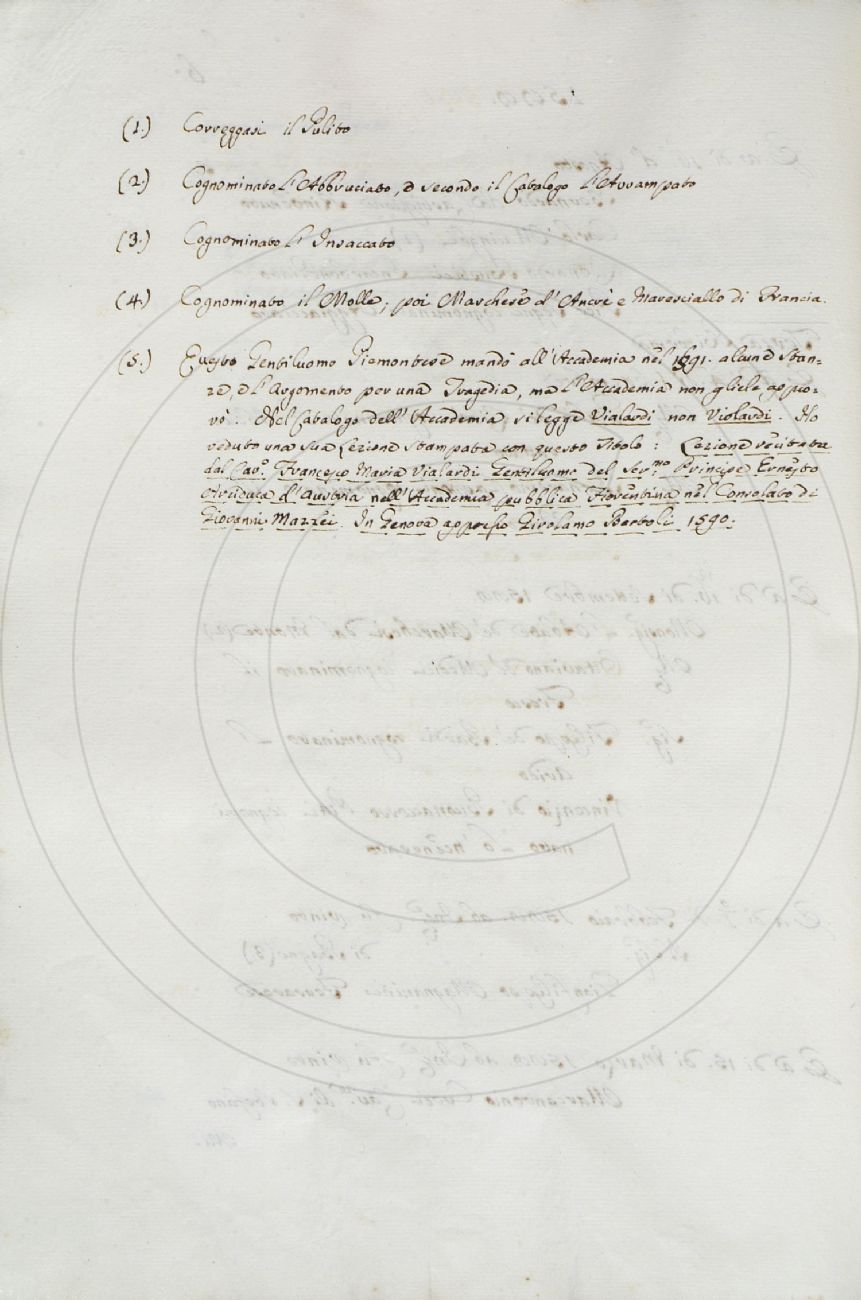 (1.) Correggasi il Pulito
(2.) Cognominato l'Abbruciato, o secondo il Catalogo l'Avvampato
(3.) Cognominato l'Insaccato
(4.) Cognominato il Molle; poi Marchese d'Ancrè e Maresciallo di Francia.
(5.) Questo Gentiluomo Piemontese mandò all'Accademia nel 1591. alcune Stan-
ze, e l'Argomento per una Tragedia, ma l'Accademia non gliele appro-
vò. Nel Catalogo dell'Accademia si legge Vialardi non Violardi. Ho
veduto una sua Lezione stampata con questo Titolo: Lezione recitata
dal Cav.e Francesco Maria Vialardi Gentiluomo del Ser.mo Principe Ernesto
Arciduca d'Austria nell'Accademia pubblica Fiorentina nel Consolato di
Giovanni Mazzei. In Genova appresso Girolamo Bartoli 1590.